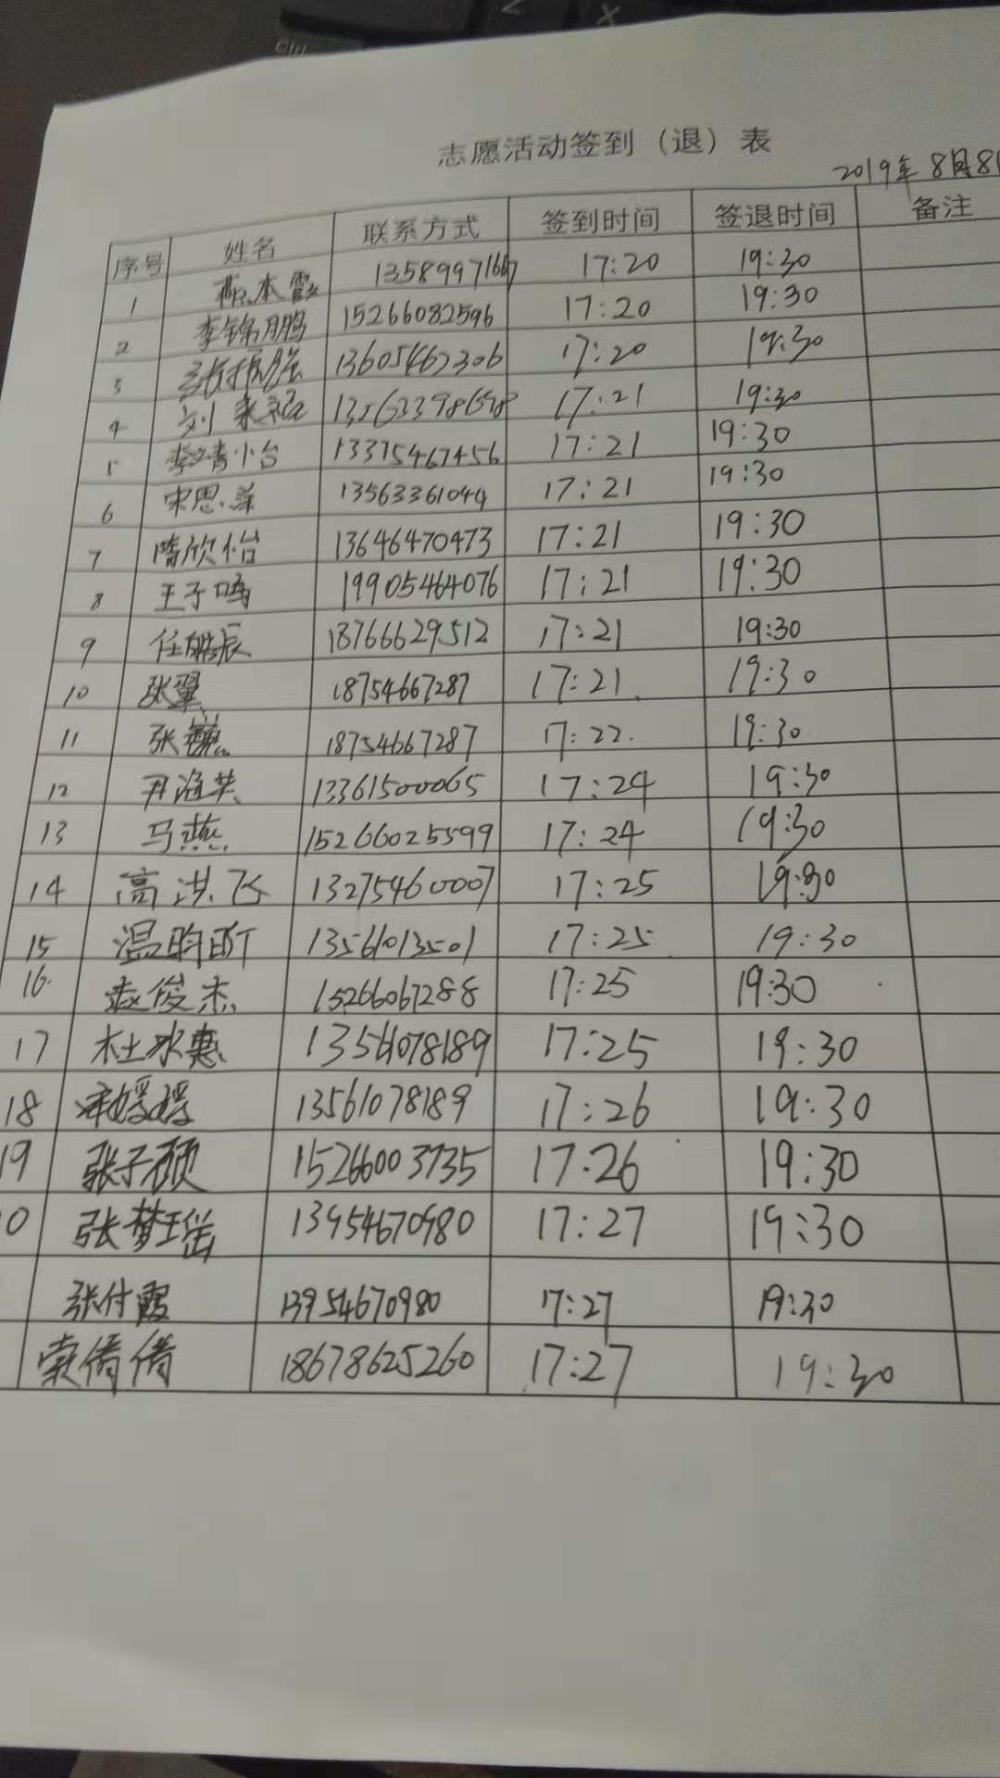 志愿活动签到（退）表
2019年8月8
序号 姓名 联系方式 签到时间 签退时间 备注
1 本霞 17:20 19:30
2 李锦鹏 15266082596 17:20 19:30
3 13605462306 17:20 19:30
4 刘 17:21 19:30
5 李 13375467456 17:21 19:30
6 宋思 13563361044 17:21 19:30
7 隋欣怡 13646470473 17:21 19:30
8 王子鸣 19905464076 17:21 19:30
9 任 辰 18766629512 17:21 19:30
10 张翼 18754667287 17:21 19:30
11 张 18754667287 17:22 19:30
12 尹 13361500065 17:24 19:30
13 马燕 15266025599 17:24 19:30
14 高洪飞 13275460007 17:25 19:30
15 温昀昕 13561013501 17:25 19:30
16 赵俊杰 15266067288 17:25 19:30
17 杜冰惠 13561078189 17:25 19:30
18 媛媛 13561078189 17:26 19:30
19 张子硕 15266003735 17:26 19:30
0 张梦瑶 13954670980 17:27 19:30
张付霞 13954670980 17:27 19:30
索倩倩 18678625260 17:27 19:30